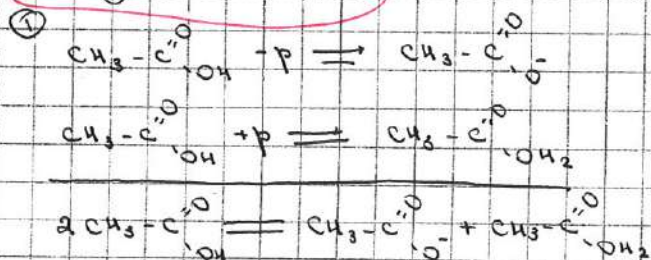 ①
CH₃ - C =O -OH - p ⇌ CH₃ - C =O -O⁻
CH₃ - C =O -OH + p ⇌ CH₃ - C =O -OH₂
2 CH₃ - C =O -OH = CH₃ - C =O -O⁻ + CH₃ - C =O -OH₂